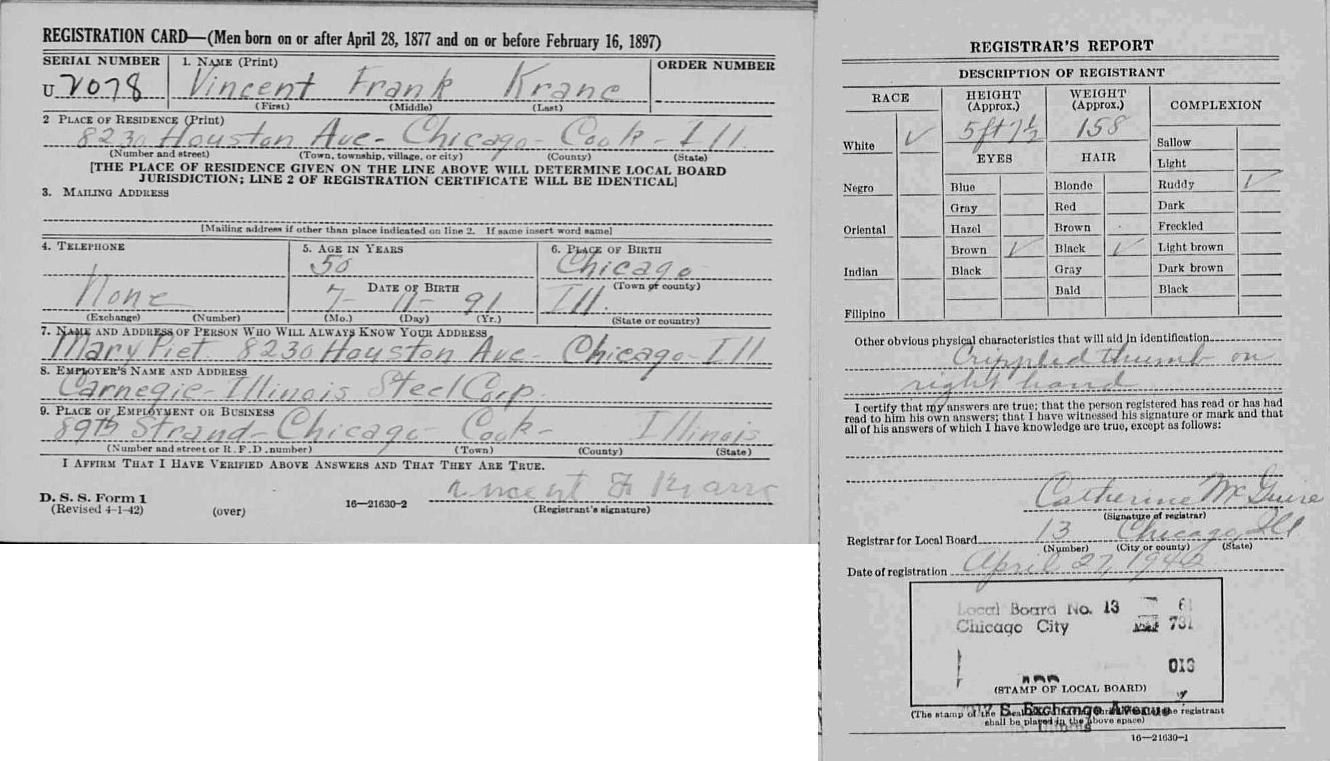 REGISTRATION CARD—(Men born on or after April 28, 1877 and on or before February 16, 1897)
SERIAL NUMBER
1. NAME (Print)
ORDER NUMBER
U 2078
Vincent Frank Krane
(First) (Middle) (Last)
2 PLACE OF RESIDENCE (Print)
8230 Houston Ave - Chicago - Cook - Ill.
(Number and street) (Town, township, village, or city) (County) (State)
[THE PLACE OF RESIDENCE GIVEN ON THE LINE ABOVE WILL DETERMINE LOCAL BOARD
JURISDICTION; LINE 2 OF REGISTRATION CERTIFICATE WILL BE IDENTICAL]
3. MAILING ADDRESS
[Mailing address if other than place indicated on line 2. If same insert word same]
4. TELEPHONE
5. AGE IN YEARS
6. PLACE OF BIRTH
50
Chicago
DATE OF BIRTH
(Town or county)
None
7 - 11 - 91
Ill.
(Exchange) (Number)
(Mo.) (Day) (Yr.)
(State or country)
7. NAME AND ADDRESS OF PERSON WHO WILL ALWAYS KNOW YOUR ADDRESS
Mary Piet 8230 Houston Ave - Chicago - Ill
8. EMPLOYER'S NAME AND ADDRESS
Carnegie - Illinois Steel Corp.
9. PLACE OF EMPLOYMENT OR BUSINESS
89th Strand - Chicago Cook - Illinois
(Number and street or R. F. D. number) (Town) (County) (State)
I AFFIRM THAT I HAVE VERIFIED ABOVE ANSWERS AND THAT THEY ARE TRUE.
Vincent F Krane
D. S. S. Form 1
(Revised 4-1-42)
(over)
16—21630-2
(Registrant's signature)
REGISTRAR'S REPORT
DESCRIPTION OF REGISTRANT
RACE
HEIGHT (Approx.)
WEIGHT (Approx.)
COMPLEXION
5 ft 7 ½
158
White ✓
Sallow
EYES
HAIR
Light
Negro
Blue
Blonde
Ruddy ✓
Gray
Red
Dark
Oriental
Hazel
Brown
Freckled
Brown ✓
Black ✓
Light brown
Indian
Black
Gray
Dark brown
Bald
Black
Filipino
Other obvious physical characteristics that will aid in identification
Crippled thumb on
right hand
I certify that my answers are true; that the person registered has read or has had
read to him his own answers; that I have witnessed his signature or mark and that
all of his answers of which I have knowledge are true, except as follows:
Catherine McGuire
(Signature of registrar)
Registrar for Local Board 13 Chicago Ill
(Number) (City or county) (State)
Date of registration April 27, 1942
Local Board No. 13 61
Chicago City 731
013
(STAMP OF LOCAL BOARD)
(The stamp of the the registrant
S. Exchange Avenue
shall be placed in the above space)
Illinois
16—21630-1